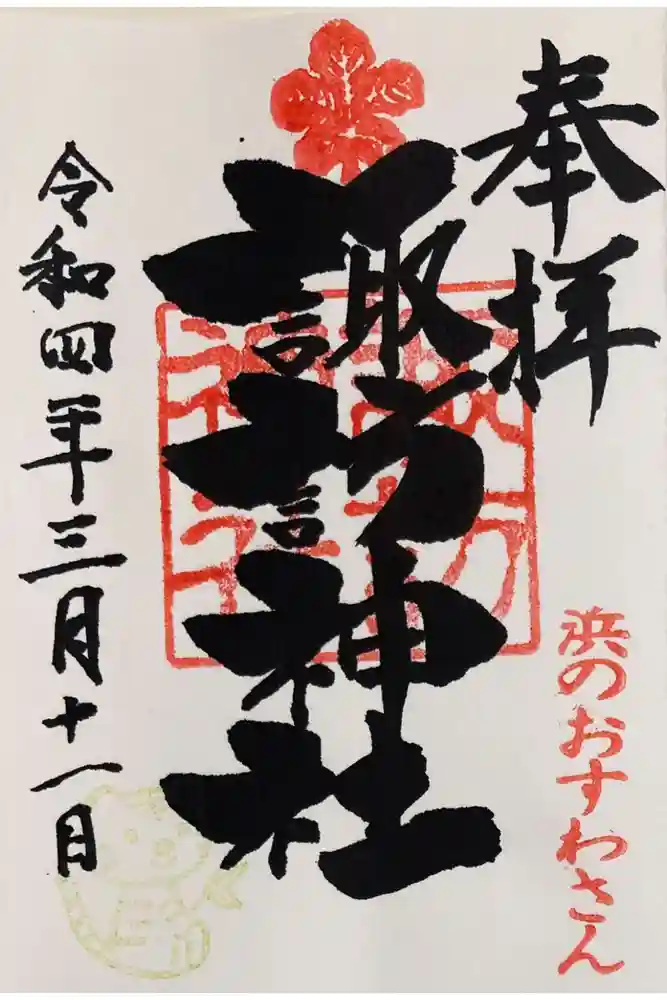 奉拝
浜のおすわさん
諏訪神社
諏訪
神社
令和四年三月十一日